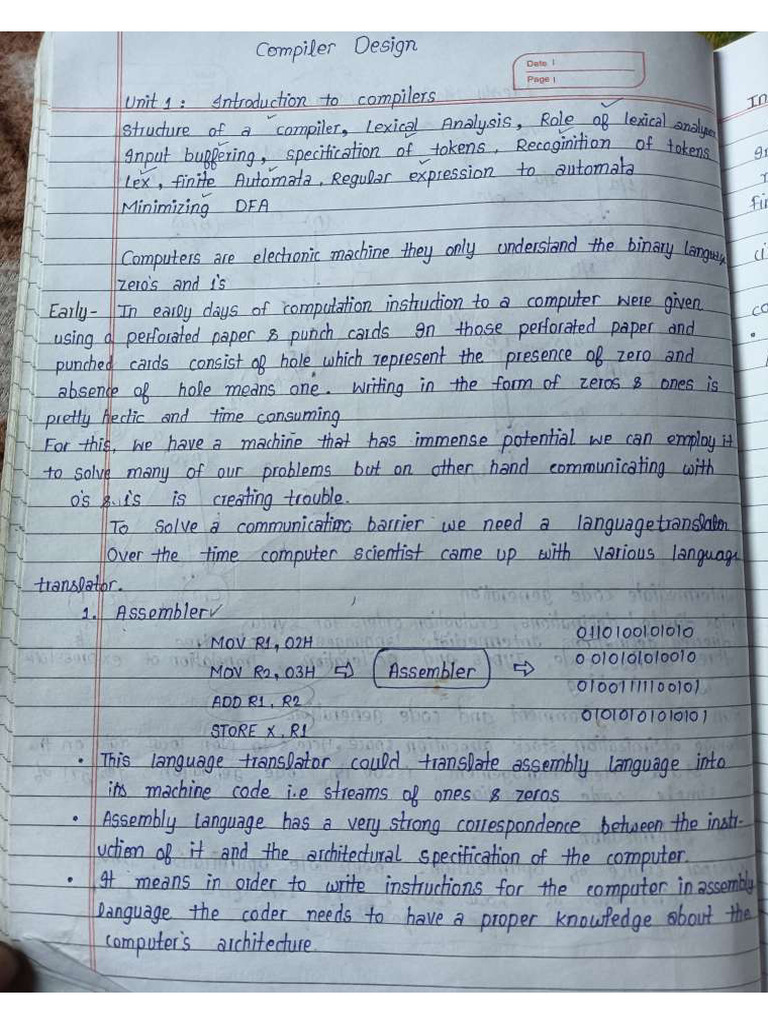 Compiler Design
Date |
Page |
Unit 1 : Introduction to compilers
Structure of a compiler, Lexical Analysis, Role of lexical analyzer
Input buffering, specification of tokens, Recoginition of tokens
Lex, finite Automata, Regular expression to automata
Minimizing DFA
Computers are electronic machine they only understand the binary language
zero's and 1's
Early- In early days of computation instruction to a computer were given
using a perforated paper & punch cards In those perforated paper and
punched cards consist of hole which represent the presence of zero and
absence of hole means one. Writing in the form of zeros & ones is
pretty hectic and time consuming
For this, we have a machine that has immense potential we can employ it
to solve many of our problems but on other hand communicating with
0's & 1's is creating trouble.
To solve a communicating barrier we need a language translator
Over the time computer scientist came up with various language
translator.
1. Assembler
MOV R1, 02H
MOV R2, 03H ⇨ Assembler ⇨
ADD R1, R2
STORE X, R1
0110100101010
0 010101010010
0100111100101
0101010101010 1
• This language translator could translate assembly language into
its machine code i.e streams of ones & zeros
• Assembly Language has a very strong correspondence between the instr-
uction of it and the architectural specification of the computer.
• It means in order to write instructions for the computer in assembly
language the coder needs to have a proper knowledge about the
computer's architecture
In
fi
(i
co